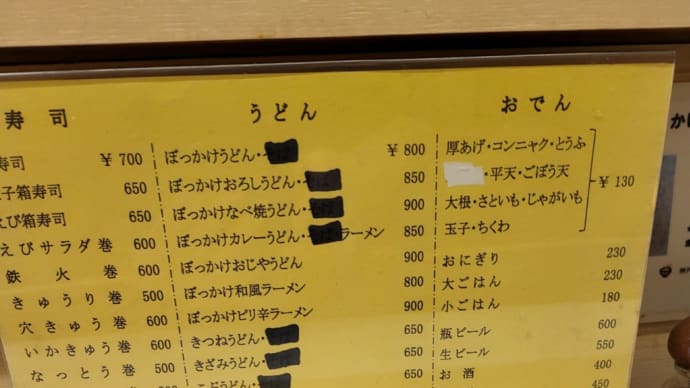 寿司
寿司 ¥700
子箱寿司 650
えび箱寿司 650
えびサラダ巻 600
鉄火巻 600
きゅうり巻 500
穴きゅう巻 600
いかきゅう巻 600
なっとう巻 500
500
うどん
ぼっかけうどん・ ¥800
ぼっかけおろしうどん・ 850
ぼっかけなべ焼うどん・ 900
ぼっかけカレーうどん・ラーメン 850
ぼっかけおじやうどん 900
ぼっかけ和風ラーメン 800
ぼっかけピリ辛ラーメン 900
きつねうどん・ 650
きざみうどん・ 650
こぶうどん・ 650
おでん
厚あげ・コンニャク・とうふ
・平天・ごぼう天
大根・さといも・じゃがいも
玉子・ちくわ
¥130
おにぎり 230
大ごはん 230
小ごはん 180
瓶ビール 600
生ビール 550
お酒 400
450
か